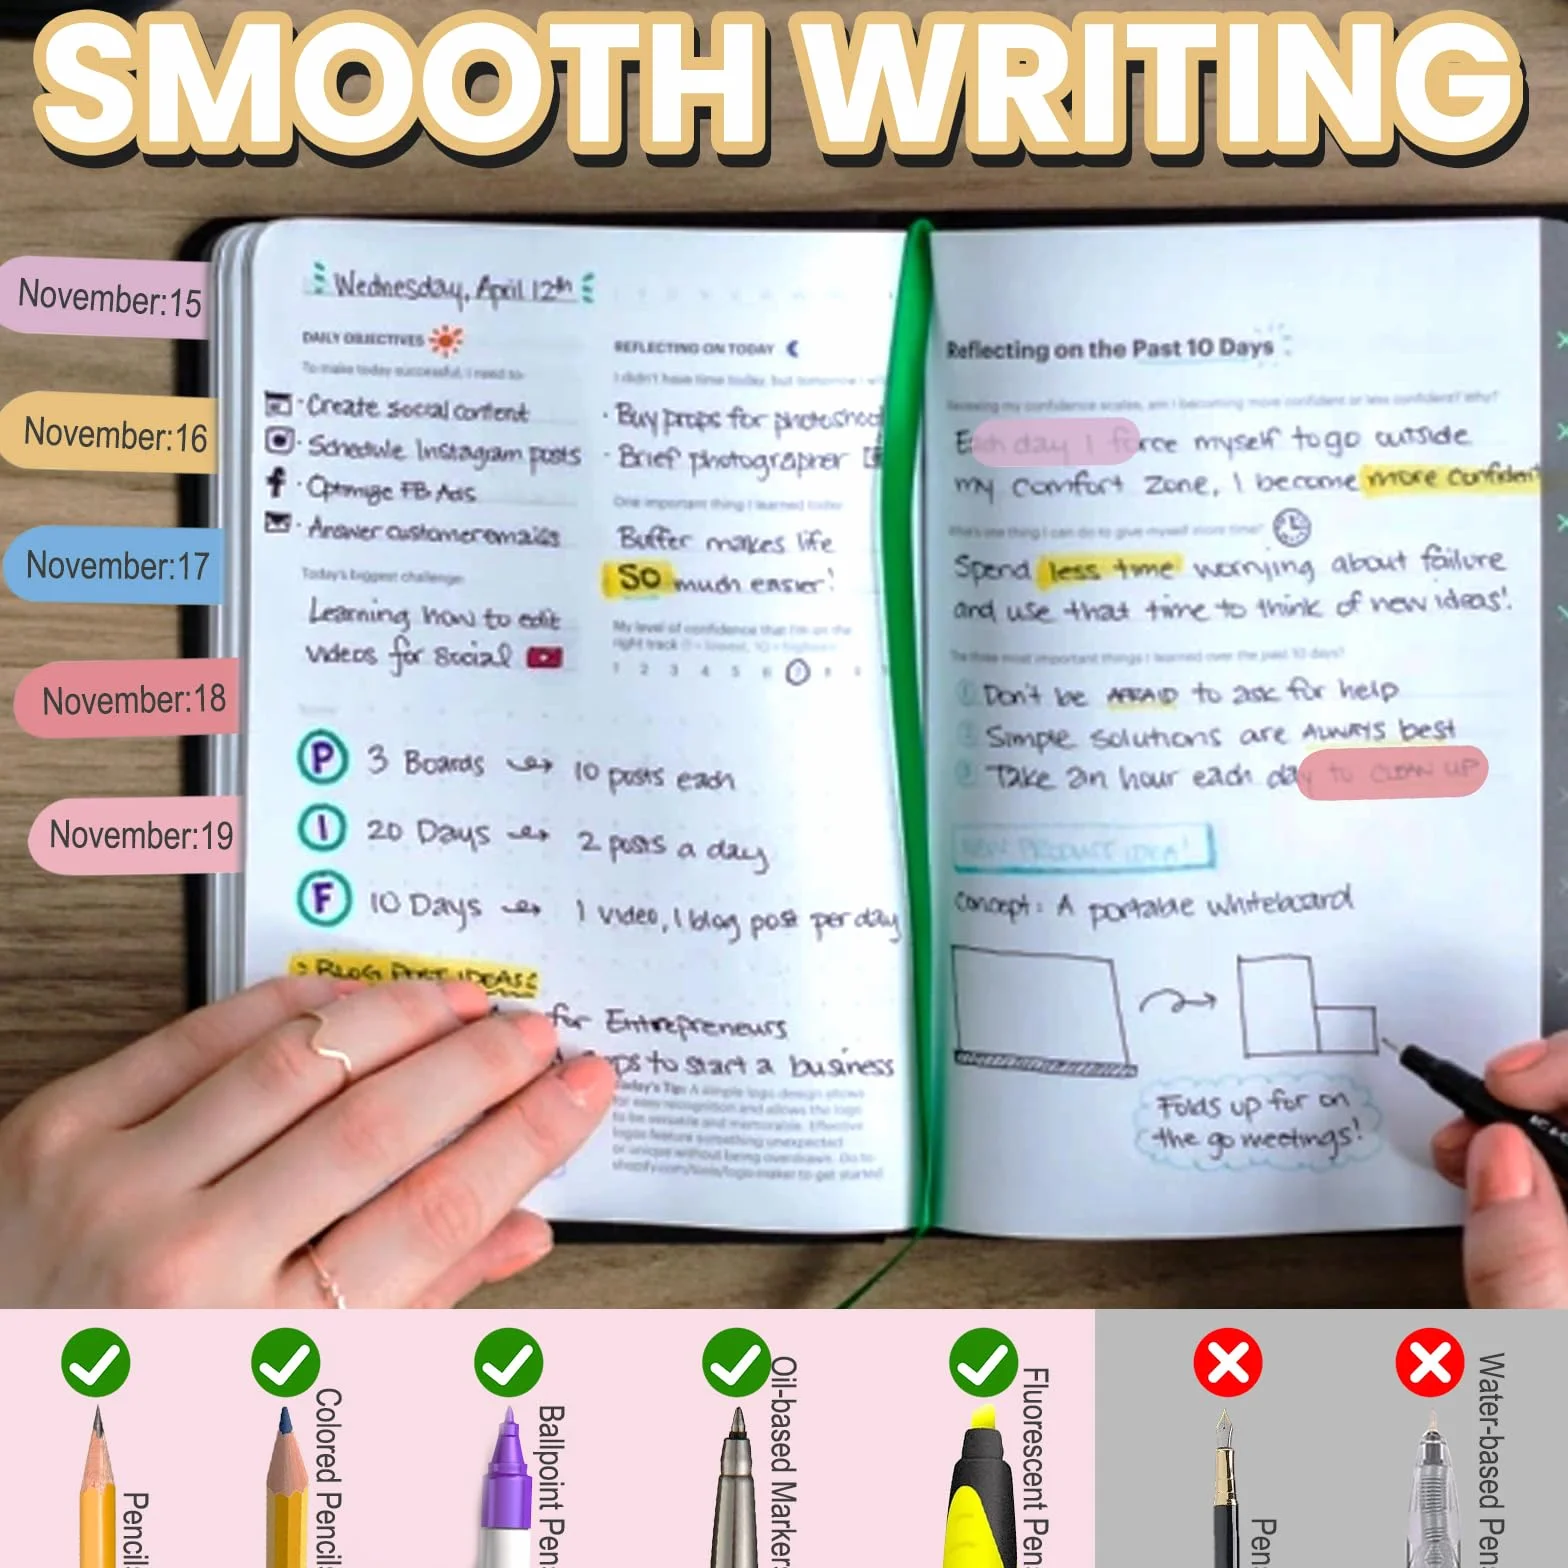 SMOOTH WRITING
November:15
November:16
November:17
November:18
November:19
Wednesday, April 12th
DAILY OBJECTIVES
To make today successful, I need to:
Create social content
Schedule Instagram posts
Optimize FB Ads
Answer customer emails
Today's biggest challenge:
Learning how to edit
videos for social
REFLECTING ON TODAY
I didn't have time today, but tomorrow I
Buy props for photoshoo
Brief photographer
One important thing I learned today
Buffer makes life
so much easier!
My level of confidence that I'm on the
right track (1 = lowest, 10 = highest)
1 2 3 4 5 6 7 8 9
P 3 Boards 10 posts each
I 20 Days 2 posts a day
F 10 Days 1 video, 1 blog post per day
BLOG POST IDEAS:
for Entrepreneurs
ps to start a business
Today's Tip: A simple logo design allows
for easy recognition and allows the logo
to be versatile and memorable. Effective
logos feature something unexpected
or unique without being overdrawn. Go to
shopify.com/tools/logo-maker to get started
Reflecting on the Past 10 Days
Reviewing my confidence scales, am I becoming more confident or less confident? Why?
Each day I force myself to go outside
my comfort zone, I become more confident
What's one thing I can do to give myself more time?
Spend less time worrying about failure
and use that time to think of new ideas!
The three most important things I learned over the past 10 days?
1 Don't be AFRAID to ask for help
2 Simple solutions are ALWAYS best
3 Take an hour each day to CLEAN UP
NEW PRODUCT IDEA!
Concept: A portable whiteboard
Folds up for on
the go meetings!
Pencils
Colored Pencil
Ballpoint Pen
Oil-based Marker
Fluorescent Pen
Pen
Water-based Pen